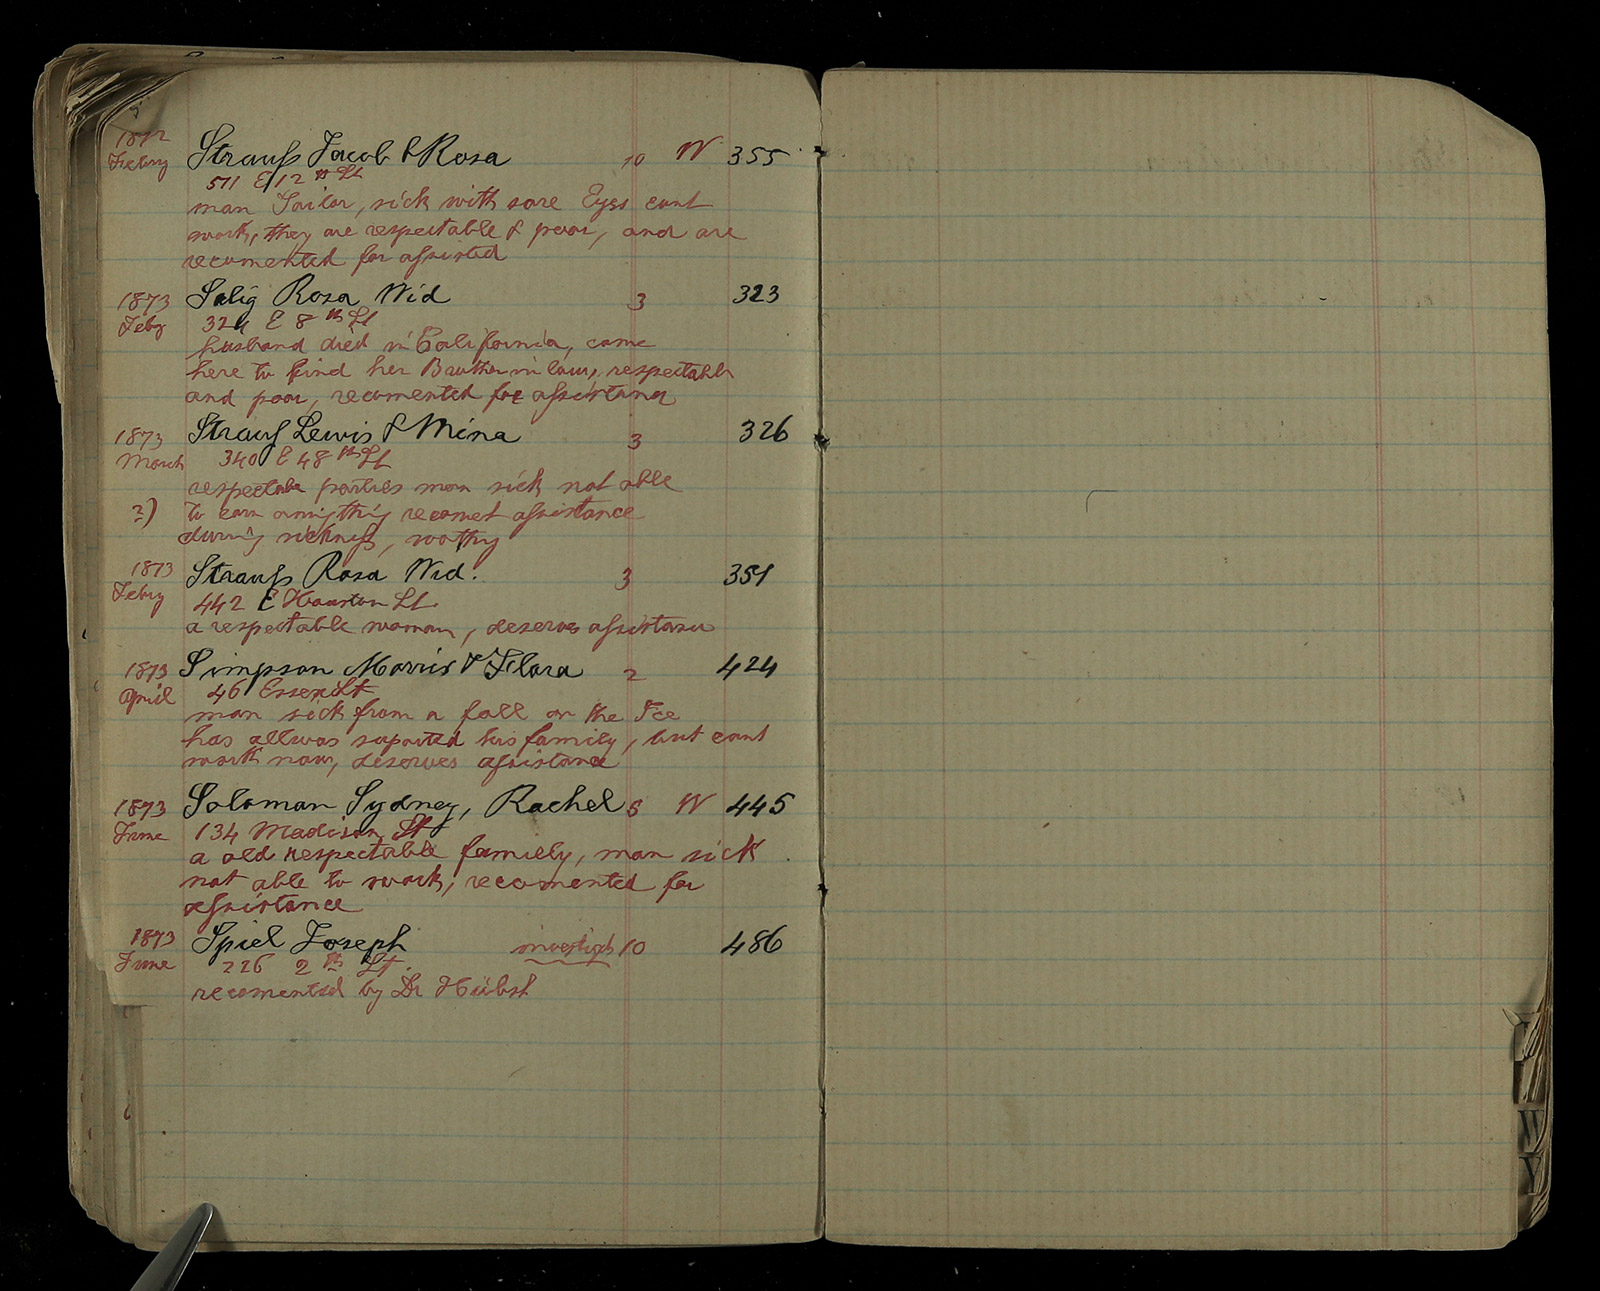 1872 Strauſs Jacob & Rosa 10 W 355
Febry 511 E 12th St
man Tailor, sick with sore Eyes cant
work, they are respectable & poor, and are
recomented for aſsisted
1873 Salig Rosa Wid 3 323
Feby 324 E 8th St
husband died in California, came
here to find her Brother in law, respectable
and poor, recomented for aſsistance
1873 Strauſ Lewis & Mina 3 326
March 340 E 48th St
respectabe parties man sick not able
2) to earn annything recomet aſsistance
during sickneſs, worthy
1873 Strauſs Rosa Wid. 3 351
Febry 442 E Houston St
a respectable woman, deserves aſsistance
1873 Simpson Morris & Flora 2 424
April 46 Essex St
man sick from a fall on the Ice
has allwas suported his family, but cant
work now, deserves aſsistance
1873 Soloman Sydney, Rachel 8 W 445
June 134 Madison St
a old respectable familly, man sick
not able to work, recomented for
aſsistance
1873 Spiel Joseph 10 486
June 226 2th St.
recomented by Dr Hübsh
W
Y